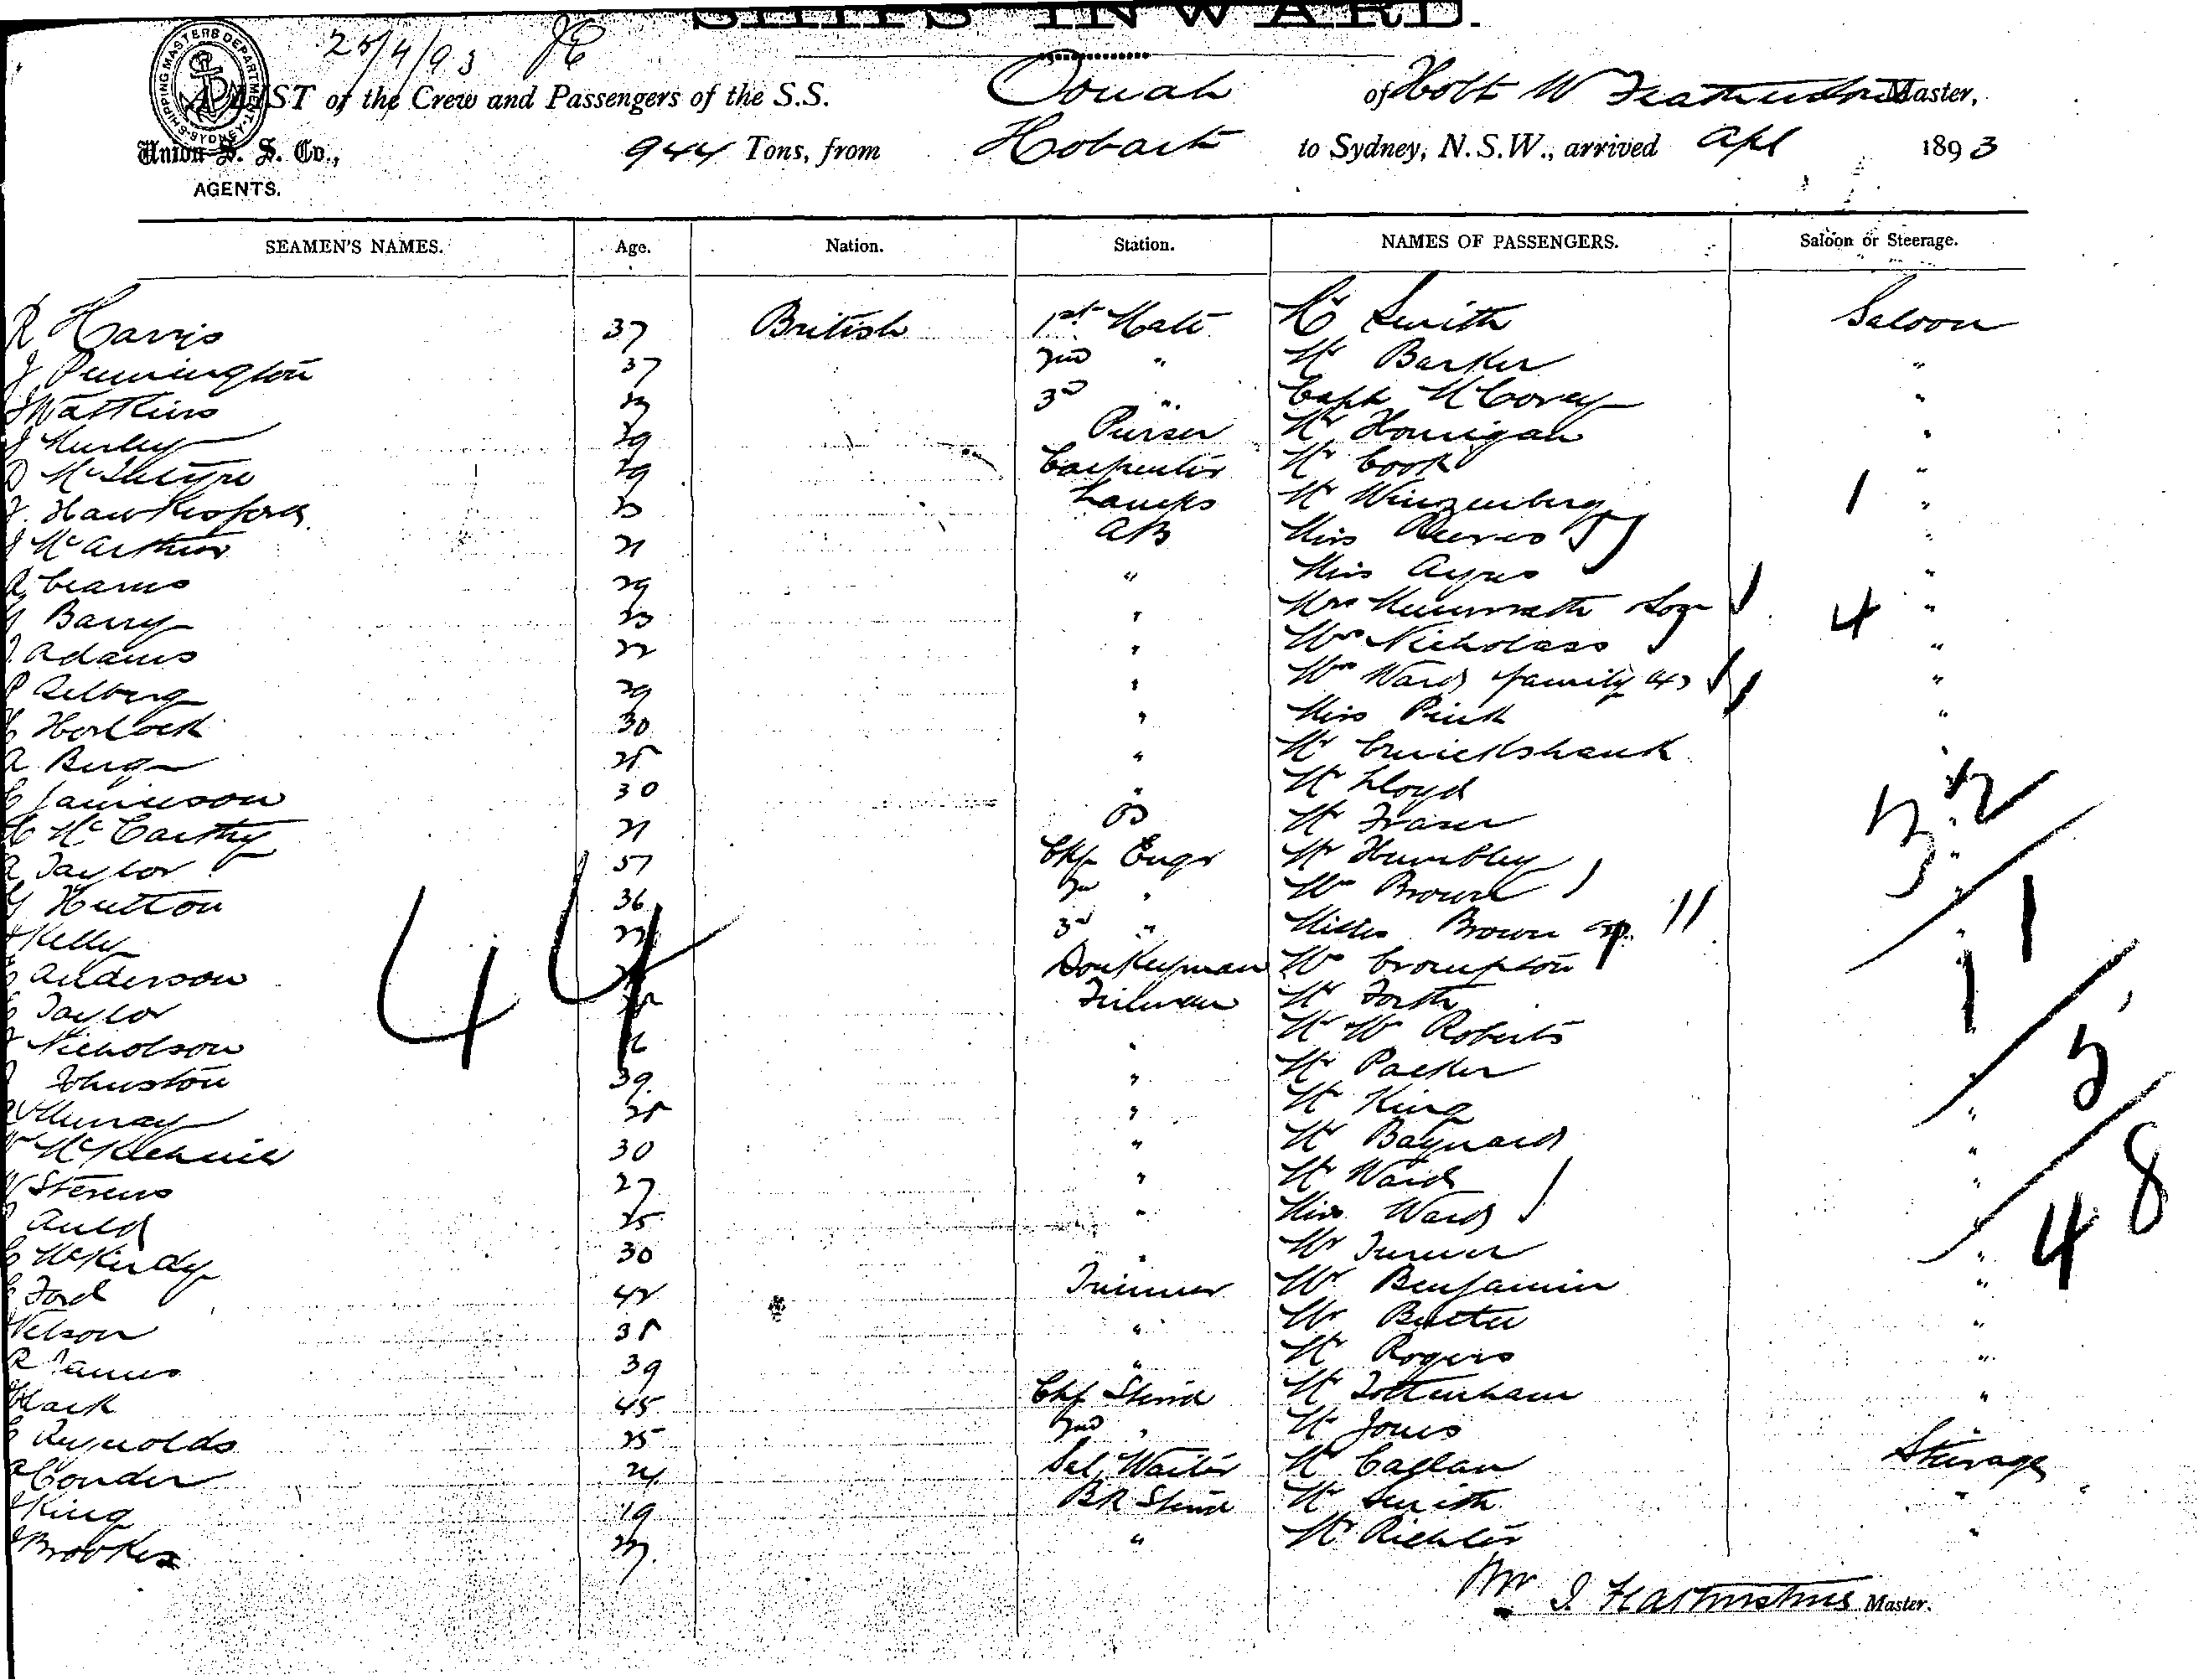 SHIPS INWARD.
25/4/93
SHIPPING MASTERS DEPARTMENT SYDNEY
A LIST of the Crew and Passengers of the S.S. Oonah of Hobt W Master,
Union S. S. Co., 944 Tons, from Hobart to Sydney, N.S.W., arrived Apl 1893
AGENTS.
SEAMEN'S NAMES. Age. Nation. Station. NAMES OF PASSENGERS. Saloon or Steerage.
R Harris 37 British 1st Mate Mr Smith Saloon
J Pennington 37 2nd " Mr Barker "
J Watkins 3rd " Capt McCovey "
J Hurley 29 Purser Mr Honnigan "
D McIntyre 29 Carpenter Mr Cook "
Hawkesford Lamps Mr Winzenberg 1 "
J McArthur 21 AB Miss Reeves "
A Cearns 29 " Miss Ayres "
Barry 23 " Mrs & son 4 "
J Adams 22 " Mrs Nicholass "
P Selberg 29 " Mrs Ward family (4) "
Horlock 30 " Miss Pink "
A Berge 25 " Mr Cruickshank "
Jamieson 30 " Mr Lloyd 32
McCarthy 21 OS Mr Fraser "
A Taylor 57 Chf Engr Mr Humbley "
Hutton 36 2nd " Mrs Brown 1
Kelly 3rd " Misses Brown (2) 11 "
Anderson Donkeyman Mrs Crompton 1
44
Taylor Fireman Mr Forth
Nicholson " Mr W Roberts 5
Johnston 39 " Mr Packer "
Murray 25 " Mr King "
McKechnie 30 " Mr Baynard "
W Stevens 27 " Mr Ward "
Auld 25 " Miss Ward 48
McKirdy 30 " Mr Turner "
Ford 42 Trimmer Mr Benjamin "
Nelson 35 " Mr "
R James 39 " Mr Rogers "
Hack 45 Chf Stewd Mr Tottenham "
Reynolds 25 2nd " Mr Jones "
Conder 24 Sal. Waiter Mr Steerage
King 19 BR Stewd Mr Smith "
J Brookes " Mr Richter "
Master.